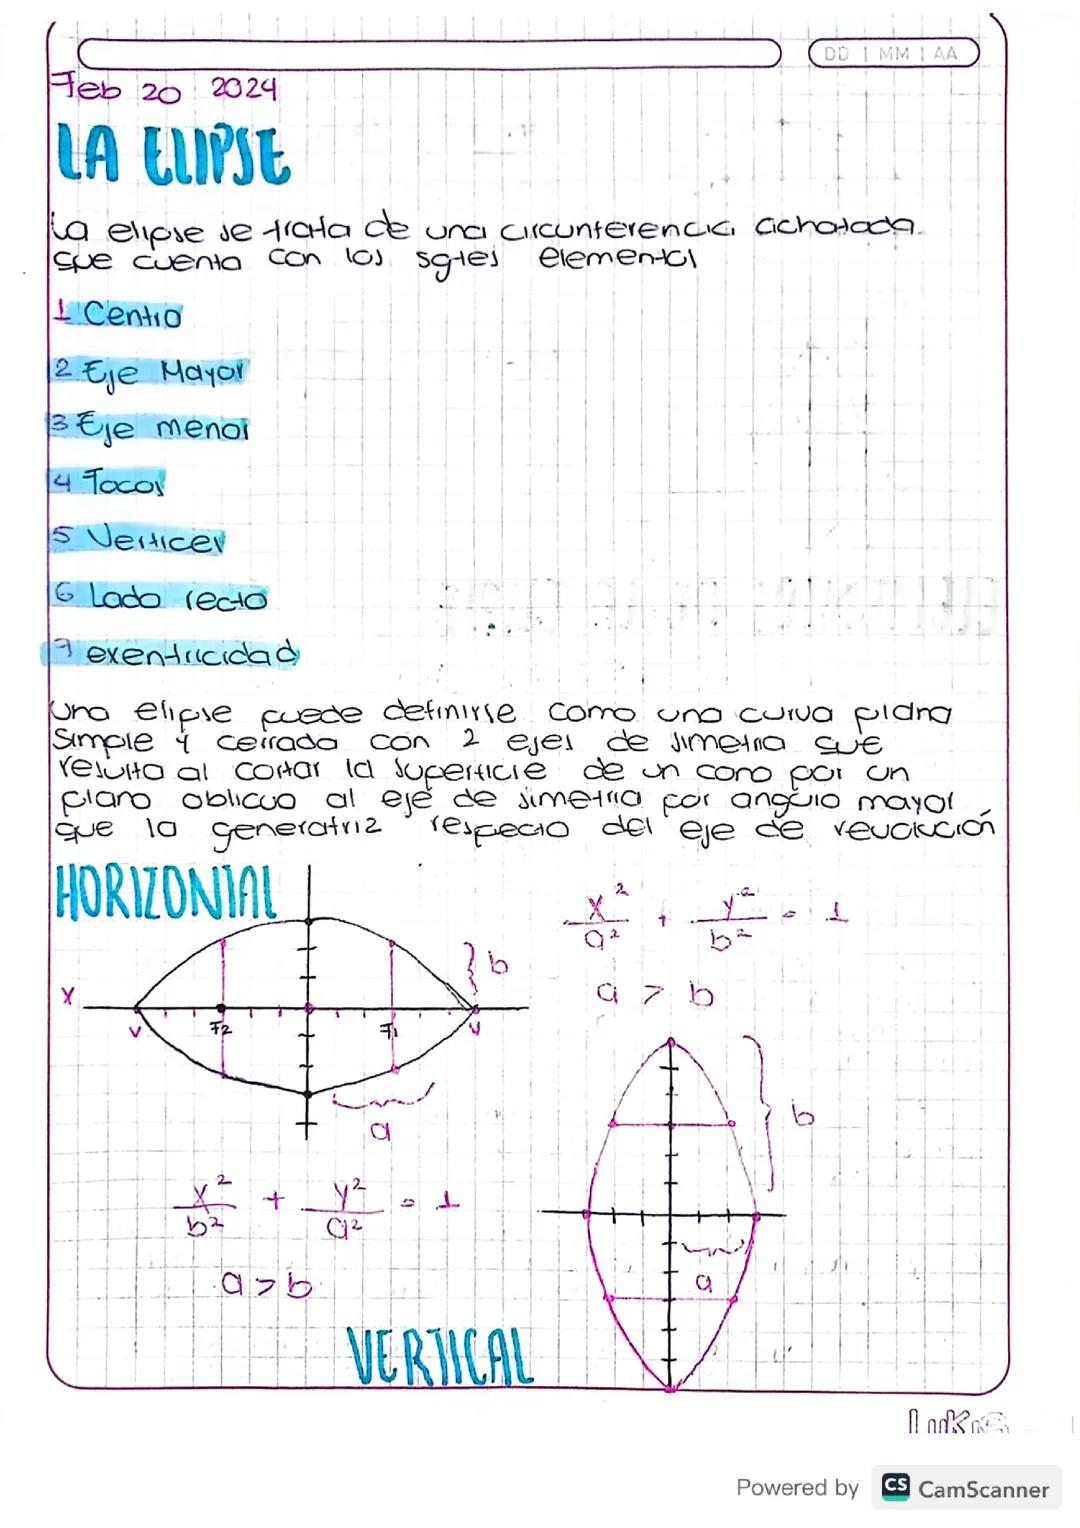 DD | MM | AA
Feb 20 2024
LA ELIPSE
La elipse se trata de una circunferencia achatada
que cuenta con los sgtes elementos
1 Centro
2 Eje Mayor
3 Eje menor
4 Focos
5 Vertices
6 Lado recto
7 exentricidad
Una elipse puede definirse como una curva plana
simple y cerrada con 2 ejes de simetria que
resulta al cortar la superficie de un cono por un
plano oblicuo al eje de simetria por angulo mayor
que la generatriz respecto del eje de revolución
HORIZONTAL
x²/a² + y²/b² = 1
b
a > b
X
V F2 F1 V
a
b
x²/b² + y²/a² = 1
a > b
a
VERTICAL
Powered by CS CamScanner